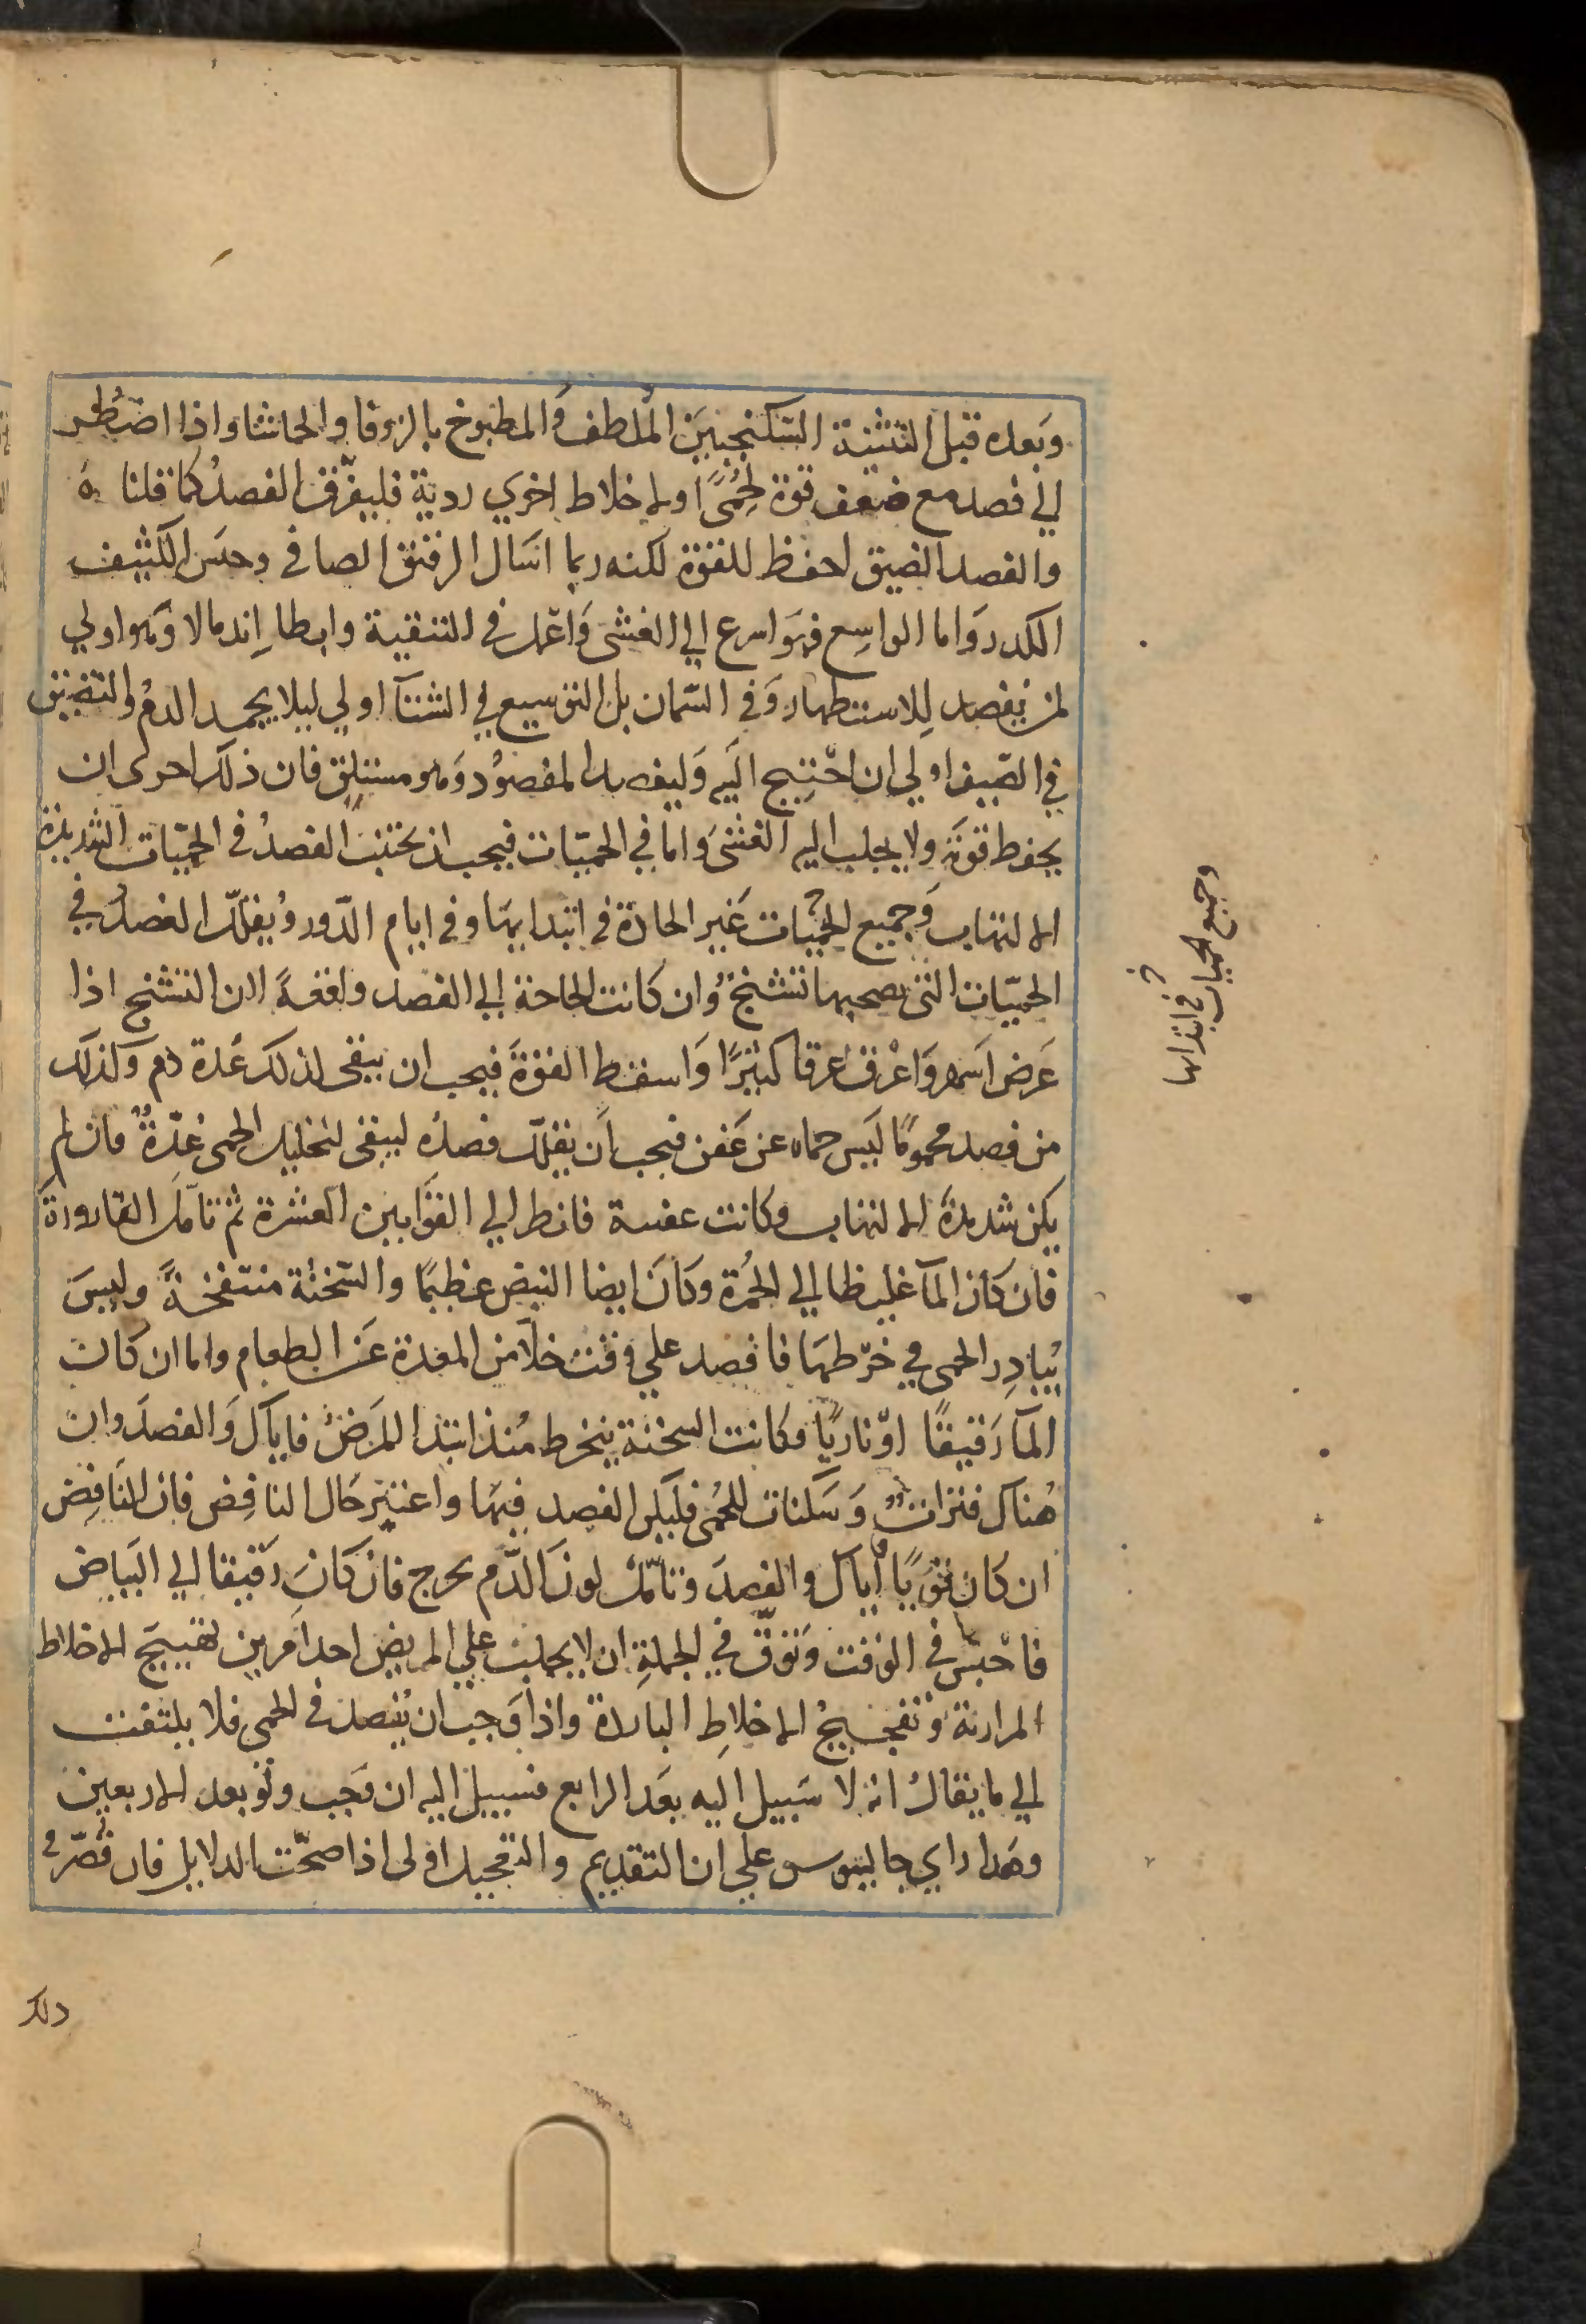 وبعده قبل التثنية السكنجبين الملطف والمطبوخ بالزوفا والحاشا واذا اضطر
الي فصد مع ضعف قوة لحمًى او لاخلاط اخري ردية فليفرّق الفصدُ كما قلناه
والفصد الضيق احفظ للقوة لكنه ربما اسال الرقيق الصافي وحبس الكثيف
الكدر وَاما الواسِع فهوَ اسرع الي الغشى وَاعمل في التنقية وابطا اِندمالا وَهو اولي
لمن يفصد لِلاستظهار وَفي السّمان بل التوسيع في الشتآ اولي ليلا يجمد الدم والتضييق
في الصّيف اولي ان احْتِيج اليه وَليفصد المفصوُد وَهو مستلق فان ذلك احرى ان
يحفظ قوتَه ولا يجلب اليه الغشىَ وَاما في الحميّات فيجب ان يجتنب الفصدُ في الحميّات الشديدة
الالتهاب وَجميع الحمّيات غَير الحادة في ابتدايهَا وفي ايام الدّور وُيقلّل الفصدُ في
الحميّات التى يصحبها تشنج وُان كانت الحاجة الي الفصد واقعةً لان التشنج اذا
عَرض اَسهر وَاعْرق عرقا كثيرًا وَاسقط القوةَ فيجب ان يبقى لذلك عُدة دم وَكذلك
من فصد محمومًا لَيس حماه عن عَفن فيجب اَن يقلّل فصدُه ليبقى لتحليل الحمى عُدّةٌ فان لم
يكن شديدةَ الالتهاب وكانت عفنة فانظر الي القوَانين العشرة ثم تامّل القارورةَ
فان كان المآ غليظا الي الحُمرة وكانَ ايضا النبض عظيمًا والسّحنة منتفخةً وليسَ
يُبادِر الحمى في خرْطهَا فافصد علي وَقت خلآ من المعدة عَن الطعام واما ان كانَ
المآ رَقيقًا اوْ ناريًا وكانت السحنة ينخرط مُنذ ابتدا المَرضُ فاياك وَالفصدَ وان
هُناك فتراتٌ وَسكنات للحُمى فليكن الفصد فيهَا واعتبر حَال النافِض فان النَافِض
ان كان قويًا فاياك والفصدَ وتامّل لونَ الدّم يخرج فان كانَ رَقيقا الي البَياض
فاحْبس في الوَقت وَتوَقّ في الجملةِ ان لا يجلب علي المريض احدَ امرين تهييجَ الاخلاط
المرارية وَتفجيجُ الاخلاطِ الباردة واذا وَجبَ ان يُفصدَ في الحمى فلا يلتفت
الي ما يقالُ انه لا سَبيل اليه بعَد الرابع فسبيل اليه ان وَجب ولوْ بعد الاربعين
وهَذا راي جالينوس علي ان التقديم والتعجيل اولى اذا صحّت الدلايل فان قُصّر في
ذلك
وجميع الحميات
في ابتدائها